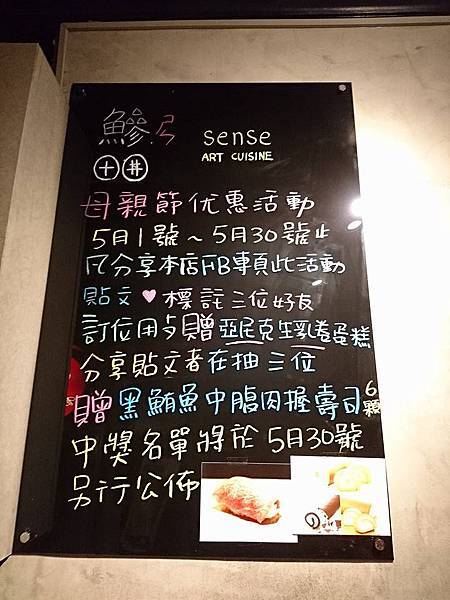 鰺 sense
ART CUISINE
十丼
母親節优惠活動
5月1號~5月30號止
凡分享本店FB專頁此活動
貼文♥標註三位好友
訂位用歺贈亞尼克生乳卷蛋糕
分享貼文者在抽三位
贈黑鮪魚中腹肉握壽司6顆
中獎名單將於5月30號
另行公佈